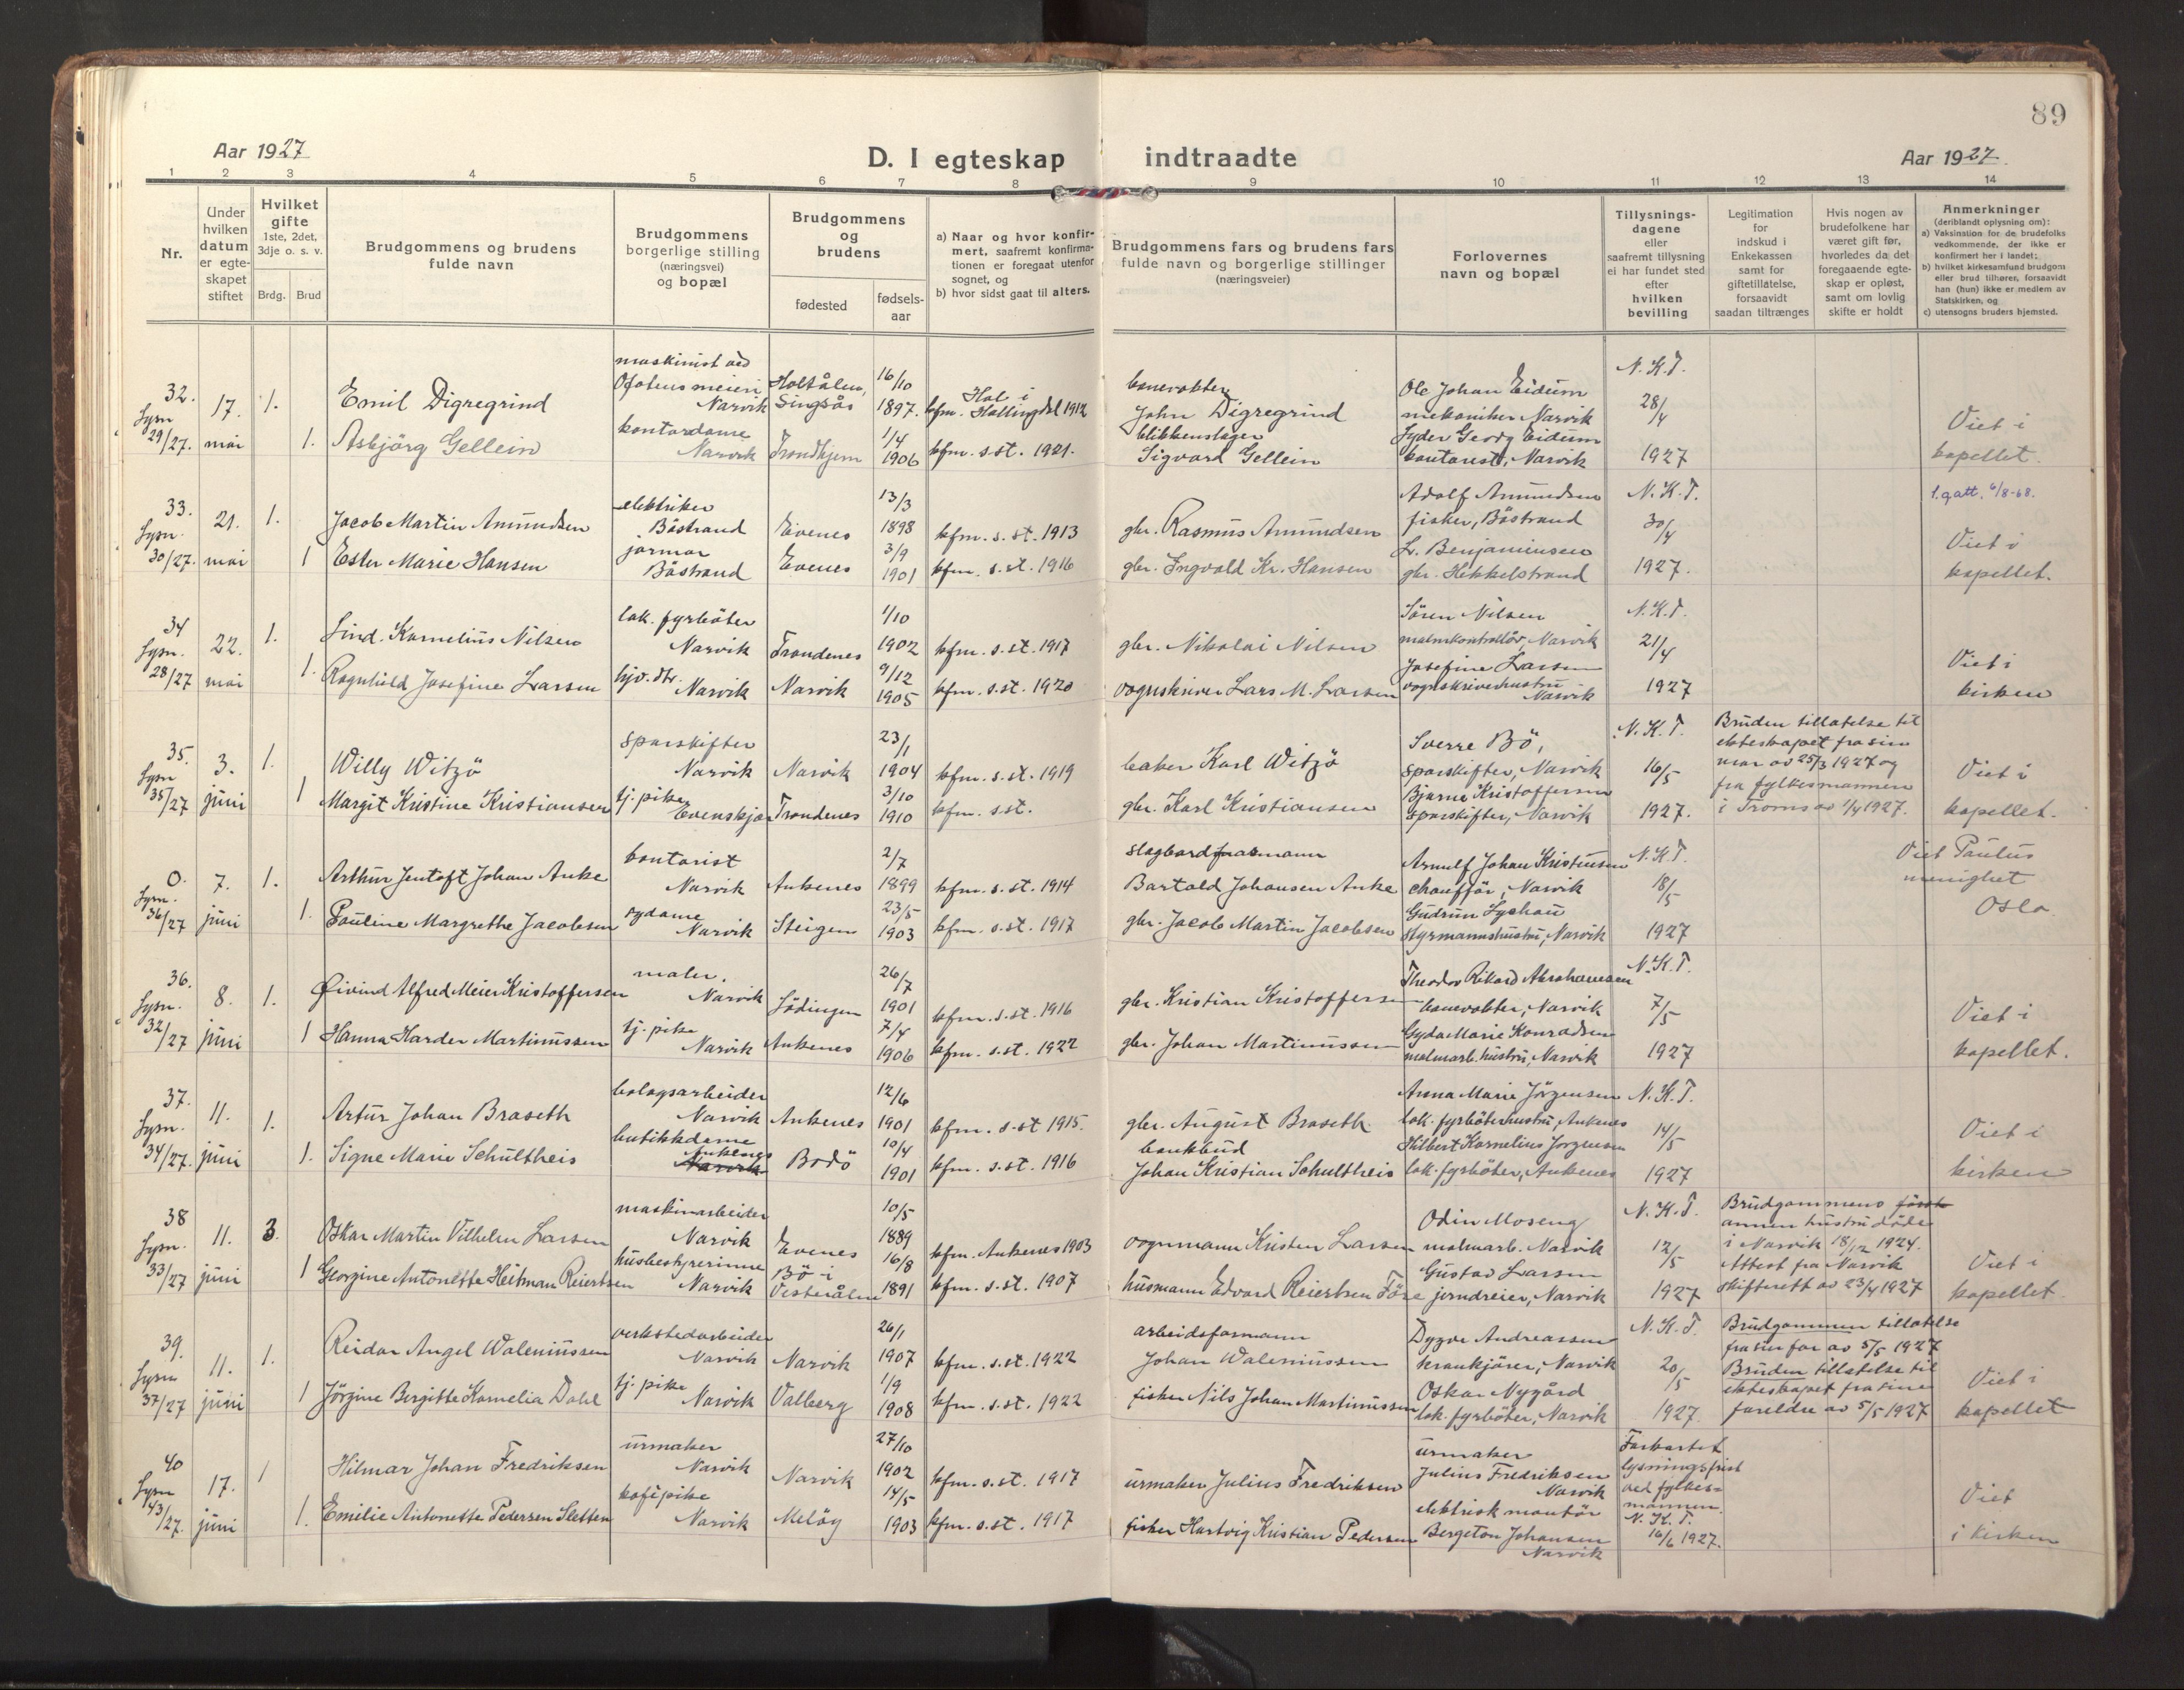 89
Aar 1927
D. I egteskap indtraadte
Aar 1927.
1 2 3 4 5 6 7 8 9 10 11 12 13 14
Nr.
Under hvilken datum er egteskapet stiftet
Hvilket gifte
1ste, 2det, 3dje o. s. v.
Brdg. Brud
Brudgommens og brudens fulde navn
Brudgommens borgerlige stilling (næringsvei) og bopæl
Brudgommens og brudens
fødested
fødsels-aar
a) Naar og hvor konfirmert, saafremt konfirmationen er foregaat utenfor sognet, og
b) hvor sidst gaat til alters.
Brudgommens fars og brudens fars fulde navn og borgerlige stillinger (næringsveier)
Forlovernes navn og bopæl
Tillysningsdagene eller saafremt tillysning ei har fundet sted efter hvilken bevilling
Legitimation for indskud i Enkekassen samt for giftetillatelse, forsaavidt saadan tiltrænges
Hvis nogen av brudefolkene har været gift før, hvorledes da det foregaaende egteskap er opløst, samt om lovlig skifte er holdt
Anmerkninger
(deriblandt oplysning om):
a) Vaksination for de brudefolks vedkommende, der ikke er konfirmert her i landet;
b) hvilket kirkesamfund brudgom eller brud tilhører, forsaavidt han (hun) ikke er medlem av Statskirken, og
c) utensogns bruders hjemsted.
32. Lysn 29/27.
17. mai
1.
Emil Digregrind
maskinist ved Ofotens meieri Narvik
Holtålen, Singsås
16/10 1897.
kfm. Hol i Hallingdal 1912
banevokter John Digregrind
Ole Johan Eidum mekaniker Narvik
N. K. T. 28/4 1927
1.
Asbjörg Gellein
kontordame Narvik
Trondhjem
1/4 1906
kfm. s. st. 1921.
blikkenslager Sigvard Gellein
Lyder Georg Eidum kontorist, Narvik
Viet i kapellet.
33. Lysn. 30/27.
21. mai
1.
Jacob Martin Amundsen
elektriker Båstrand
Evenes
13/3 1898
kfm. s. st. 1913
gbr. Rasmus Amundsen
Adolf Amundsen fisker, Båstrand
N. K. T. 30/4 1927.
1
Ester Marie Hansen
jormor Båstrand
Evenes
3/9 1901
kfm. s. st. 1916
gbr. Ingvald Kr. Hansen
L. Benjaminsen gbr. Hekkelstrand
1. g att. 6/8-68.
Viet i kapellet.
34 Lysn. 28/27
22. mai
1.
Lind. Kornelius Nilsen
lok. fyrböter Narvik
Trondenes
1/10 1902
kfm. s. st. 1917
gbr. Nikolai Nilsen
Sören Nilsen malmkontrollör, Narvik
N. K. T. 21/4 1927
1.
Ragnhild Josefine Larsen
hjv. dtr. Narvik
Narvik
9/12 1905
kfm. s. st. 1920
vognskriver Lars M. Larsen
Josefine Larsen vognskriverhustru Narvik
Viet i kirken
35. Lysn 35/27
3. juni
1.
Willy Witzö
sporskifter Narvik
Narvik
23/1 1904
kfm. s. st. 1919
baker Karl Witzö
Sverre Bö, sporskifter, Narvik
N. K. T. 16/5 1927.
1
Margit Kristine Kristiansen
tj. pike Evenskjær
Trondenes
3/10 1910
kfm. s. st.
gbr. Karl Kristiansen
Bjarne Kristoffersen sporskifter, Narvik
Bruden tillatelse til ekteskapet fra sin mor av 25/3 1927 og fra fylkesmannen i Troms av 1/4 1927.
Viet i kapellet.
0. Lysn. 36/27
7. juni
1.
Arthur Jentoft Johan Anke
kontorist Narvik
Ankenes
2/7 1899
kfm. s. st. 1914
Bartold Johansen Anke
Arnulf Johan Kristensen chaufför, Narvik
N. K. T. 18/5 1927
1.
Pauline Margrethe Jacobsen
sydame Narvik
Steigen
23/5 1903
kfm. s. st. 1917
gbr. Jacob Martin Jacobsen
Gudrun Lyshau styrmannshustru, Narvik
Viet Paulus menighet Oslo.
36. Lysn. 32/27
8. juni
1.
Øivind Alfred Meier Kristoffersen
maler. Narvik
Lödingen
26/7 1901
kfm. s. st. 1916
gbr. Kristian Kristoffersen
Theodor Rikard Abrahamsen banevokter, Narvik
N. K. T. 7/5 1927
1
Hanna Harder Martinussen
tj. pike Narvik
Ankenes
7/4 1906
kfm. s. st. 1922
gbr. Johan Martinussen
Gyda Marie Konradsen malmarb. hustru, Narvik
Viet i kapellet.
37. Lysn. 34/27.
11. juni
1.
Artur Johan Braseth
bolagsarbeider Narvik
Ankenes
12/6 1901
kfm. s. st 1915.
gbr. August Braseth
Anna Marie Jörgensen lok. fyrböterhustru, Ankenes
N. K. T. 14/5 1927
1.
Signe Marie Schultheis
butikkdame Ankenes Narvik
Bodö
10/4 1901
kfm. s. st. 1916
bankbud Johan Kristian Schultheis
Hilbert Kornelius Jörgensen lok. fyrböter, Ankenes
Viet i kirken
38 Lysn. 33/27
11. juni
3.
Oskar Martin Vilhelm Larsen
maskinarbeider Narvik
Evenes
10/5 1889
kfm. Ankenes 1903
vognmann Kristen Larsen
Odin Moseng malmarb. Narvik
N. K. T. 12/5 1927
1
Georgine Antonette Heitman Reiertsen
husbestyrerinne Narvik
Bö i Vesterålen
16/8 1891
kfm. s. st. 1907
husmann Edvard Reiertsen Före
Gustav Larsen jerndreier, Narvik
Brudgommens förste annen hustru döde i Narvik 18/12 1924. Attest fra Narvik skifterett av 23/4 1927
Viet i kapellet.
39. Lysn 37/27
11. juni
1.
Reidar Angel Waleniussen
verkstedarbeider Narvik
Narvik
26/1 1907
kfm. s. st. 1922
arbeidsformann Johan Waleniussen
Dygve Andreassen krankjörer, Narvik
N. K. T. 20/5 1927.
1
Jörgine Bergitte Kornelia Dahl
tj. pike Narvik
Valberg
1/9 1908
kfm. s. st. 1922
fisker Nils Johan Martinussen
Oskar Nygård lok. fyrböter, Narvik
Brudgommen tillatelse fra sin far av 5/5 1927
Bruden tillatelse til ekteskapet fra sine foreldre av 5/5 1927
Viet i kapellet
40 Lysn 43/27.
17. juni
1
Hilmar Johan Fredriksen
urmaker Narvik
Narvik
27/10 1902
kfm. s. st. 1917
urmaker Julius Fredriksen
urmaker Julius Fredriksen Narvik
Forkortet lysningsfrist ved fylkesmannen. N. K. T. 16/6 1927.
1.
Emilie Antonette Pedersen Sletten
kafépike Narvik
Meløy
14/5 1903
kfm. s. st. 1917
fisker Hartvig Kristian Pedersen
elektrisk montör Bergeton Johansen Narvik
Viet i kirken